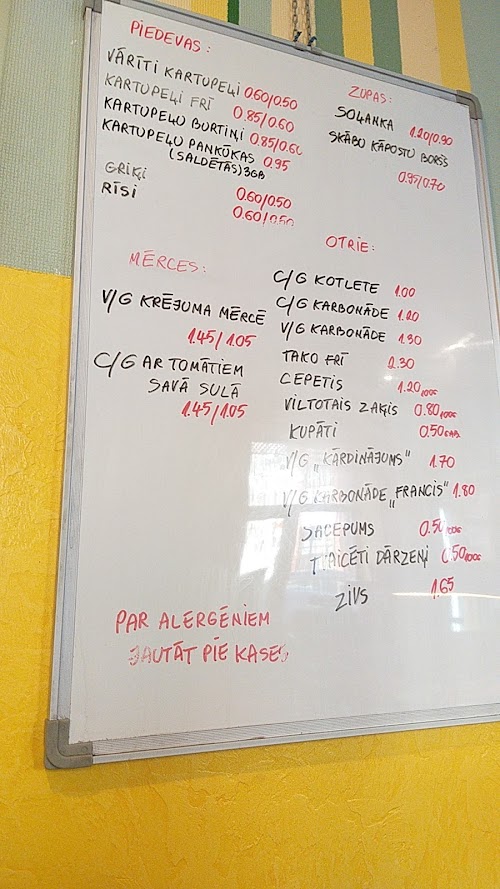 PIEDEVAS:
VĀRĪTI KARTUPEĻI 0.60/0.50
KARTUPEĻI FRĪ 0.85/0.60
KARTUPEĻU BURTIŅI 0.85/0.60
KARTUPEĻU PANKŪKAS 0.95
(SALDĒTĀS) 3GB
GRIĶI 0.60/0.50
RĪSI 0.60/0.50
MĒRCES:
V/G KRĒJUMA MĒRCĒ
1.45/1.05
C/G AR TOMĀTIEM
SAVĀ SULĀ
1.45/1.05
ZUPAS:
SOĻANKA 1.20/0.90
SKĀBO KĀPOSTU BORŠS
0.95/0.70
OTRIE:
C/G KOTLETE 1.00
C/G KARBONĀDE 1.20
V/G KARBONĀDE 1.30
TAKO FRĪ 2.30
CEPETIS 1.20 100G
VILTOTAIS ZAĶIS 0.80 100G
KUPĀTI 0.50 GAB.
V/G „KĀRDINĀJUMS" 1.70
V/G KARBONĀDE „FRANCIS" 1.80
SACEPUMS 0.50 100G
TVAICĒTI DĀRZEŅI 0.50 100G
ZIVS 1.65
PAR ALERGĒNIEM
JAUTĀT PIE KASES